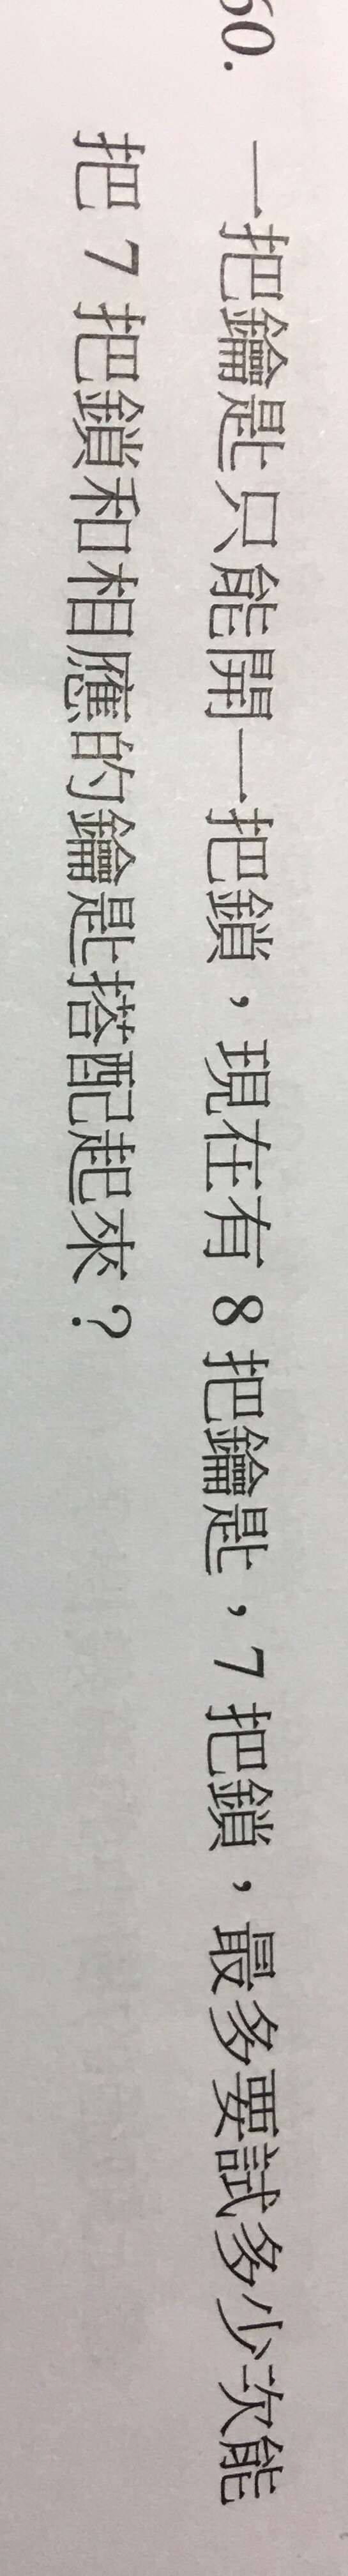 60. 一把鑰匙只能開一把鎖，現在有 8 把鑰匙，7 把鎖，最多要試多少次能
把 7 把鎖和相應的鑰匙搭配起來？